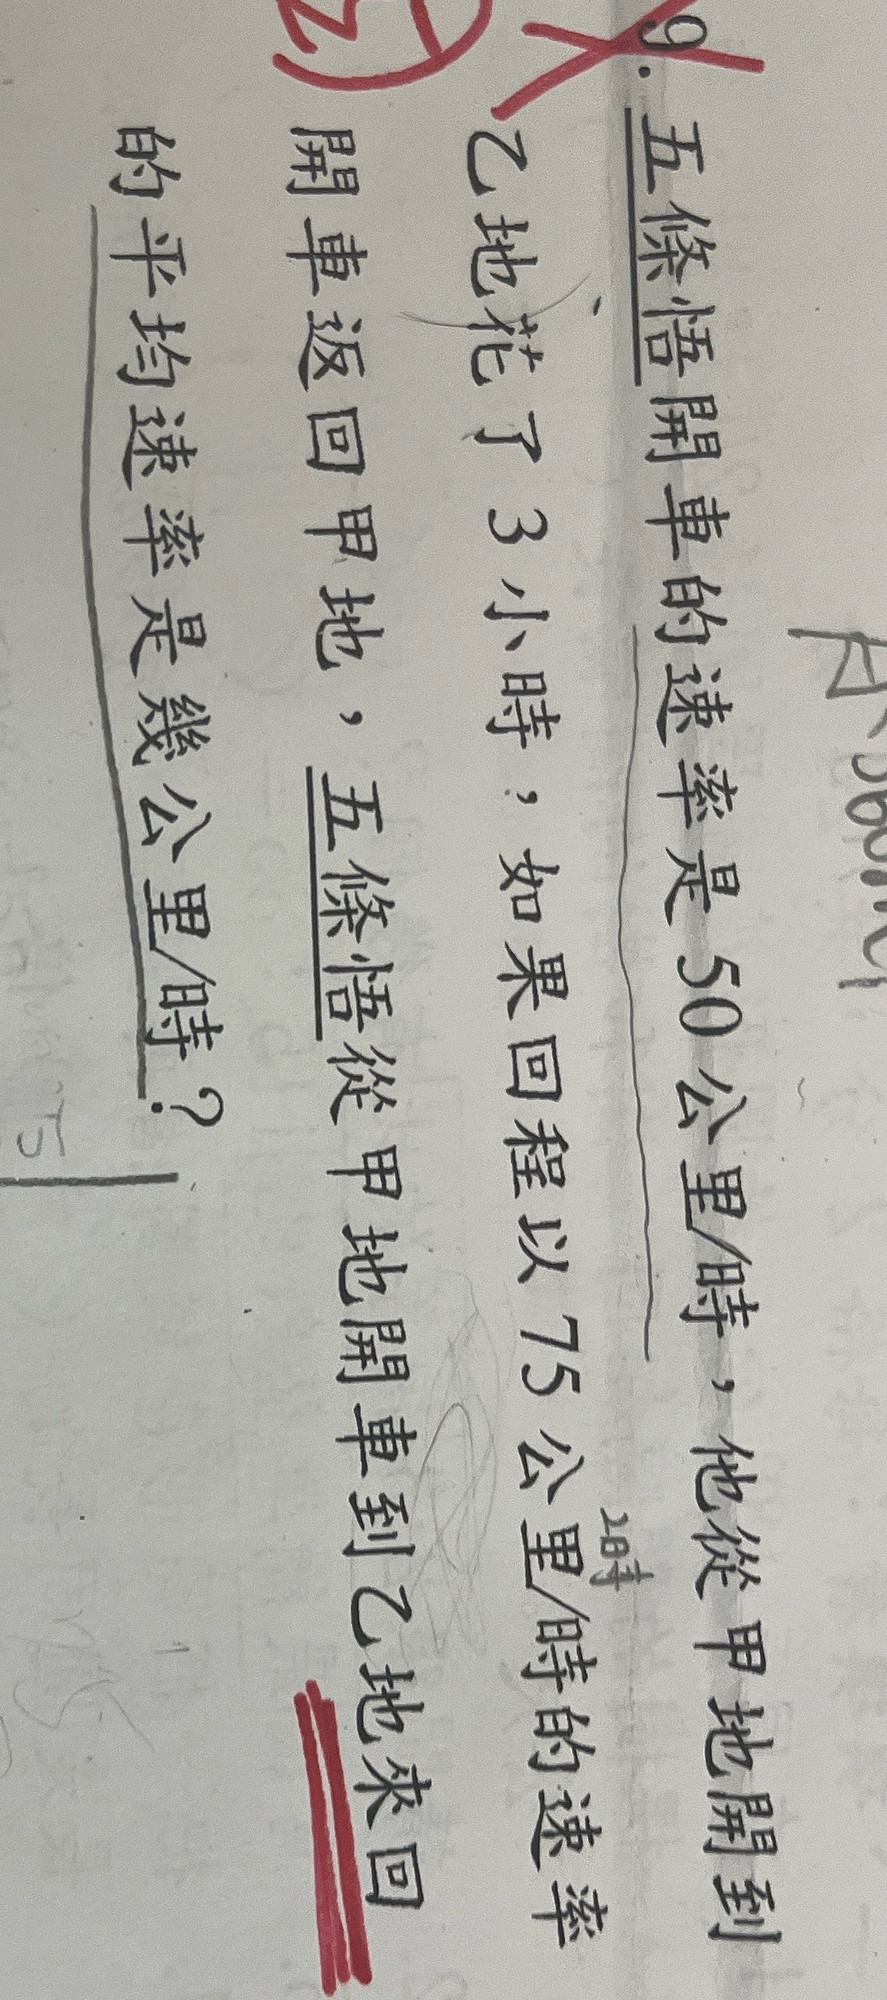 9. 五條悟開車的速率是50公里/時，他從甲地開到
乙地花了3小時，如果回程以75公里/時的速率
2時
開車返回甲地，五條悟從甲地開車到乙地來回
的平均速率是幾公里/時？